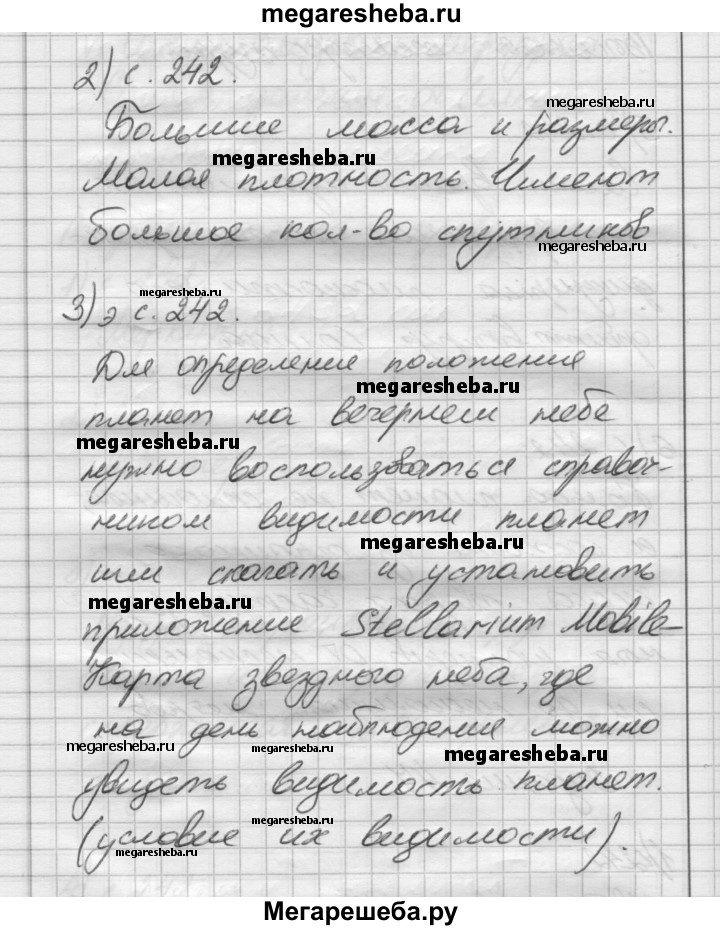 megaresheba.ru
2) с. 242.
megaresheba.ru
Большие масса и размеры.
megaresheba.ru
Малая плотность. Имеют
большое кол-во спутников
megaresheba.ru
megaresheba.ru
3) э с. 242.
Для определения положения
megaresheba.ru
планет на вечернем небе
megaresheba.ru
нужно воспользоваться справоч-
ником видимости планет
megaresheba.ru
или скачать и установить
megaresheba.ru
приложение Stellarium Mobile-
Карта звездного неба, где
на день наблюдения можно
megaresheba.ru
megaresheba.ru
megaresheba.ru
увидеть видимость планет.
megaresheba.ru
(условие их видимости).
megaresheba.ru
Мегарешеба.ру